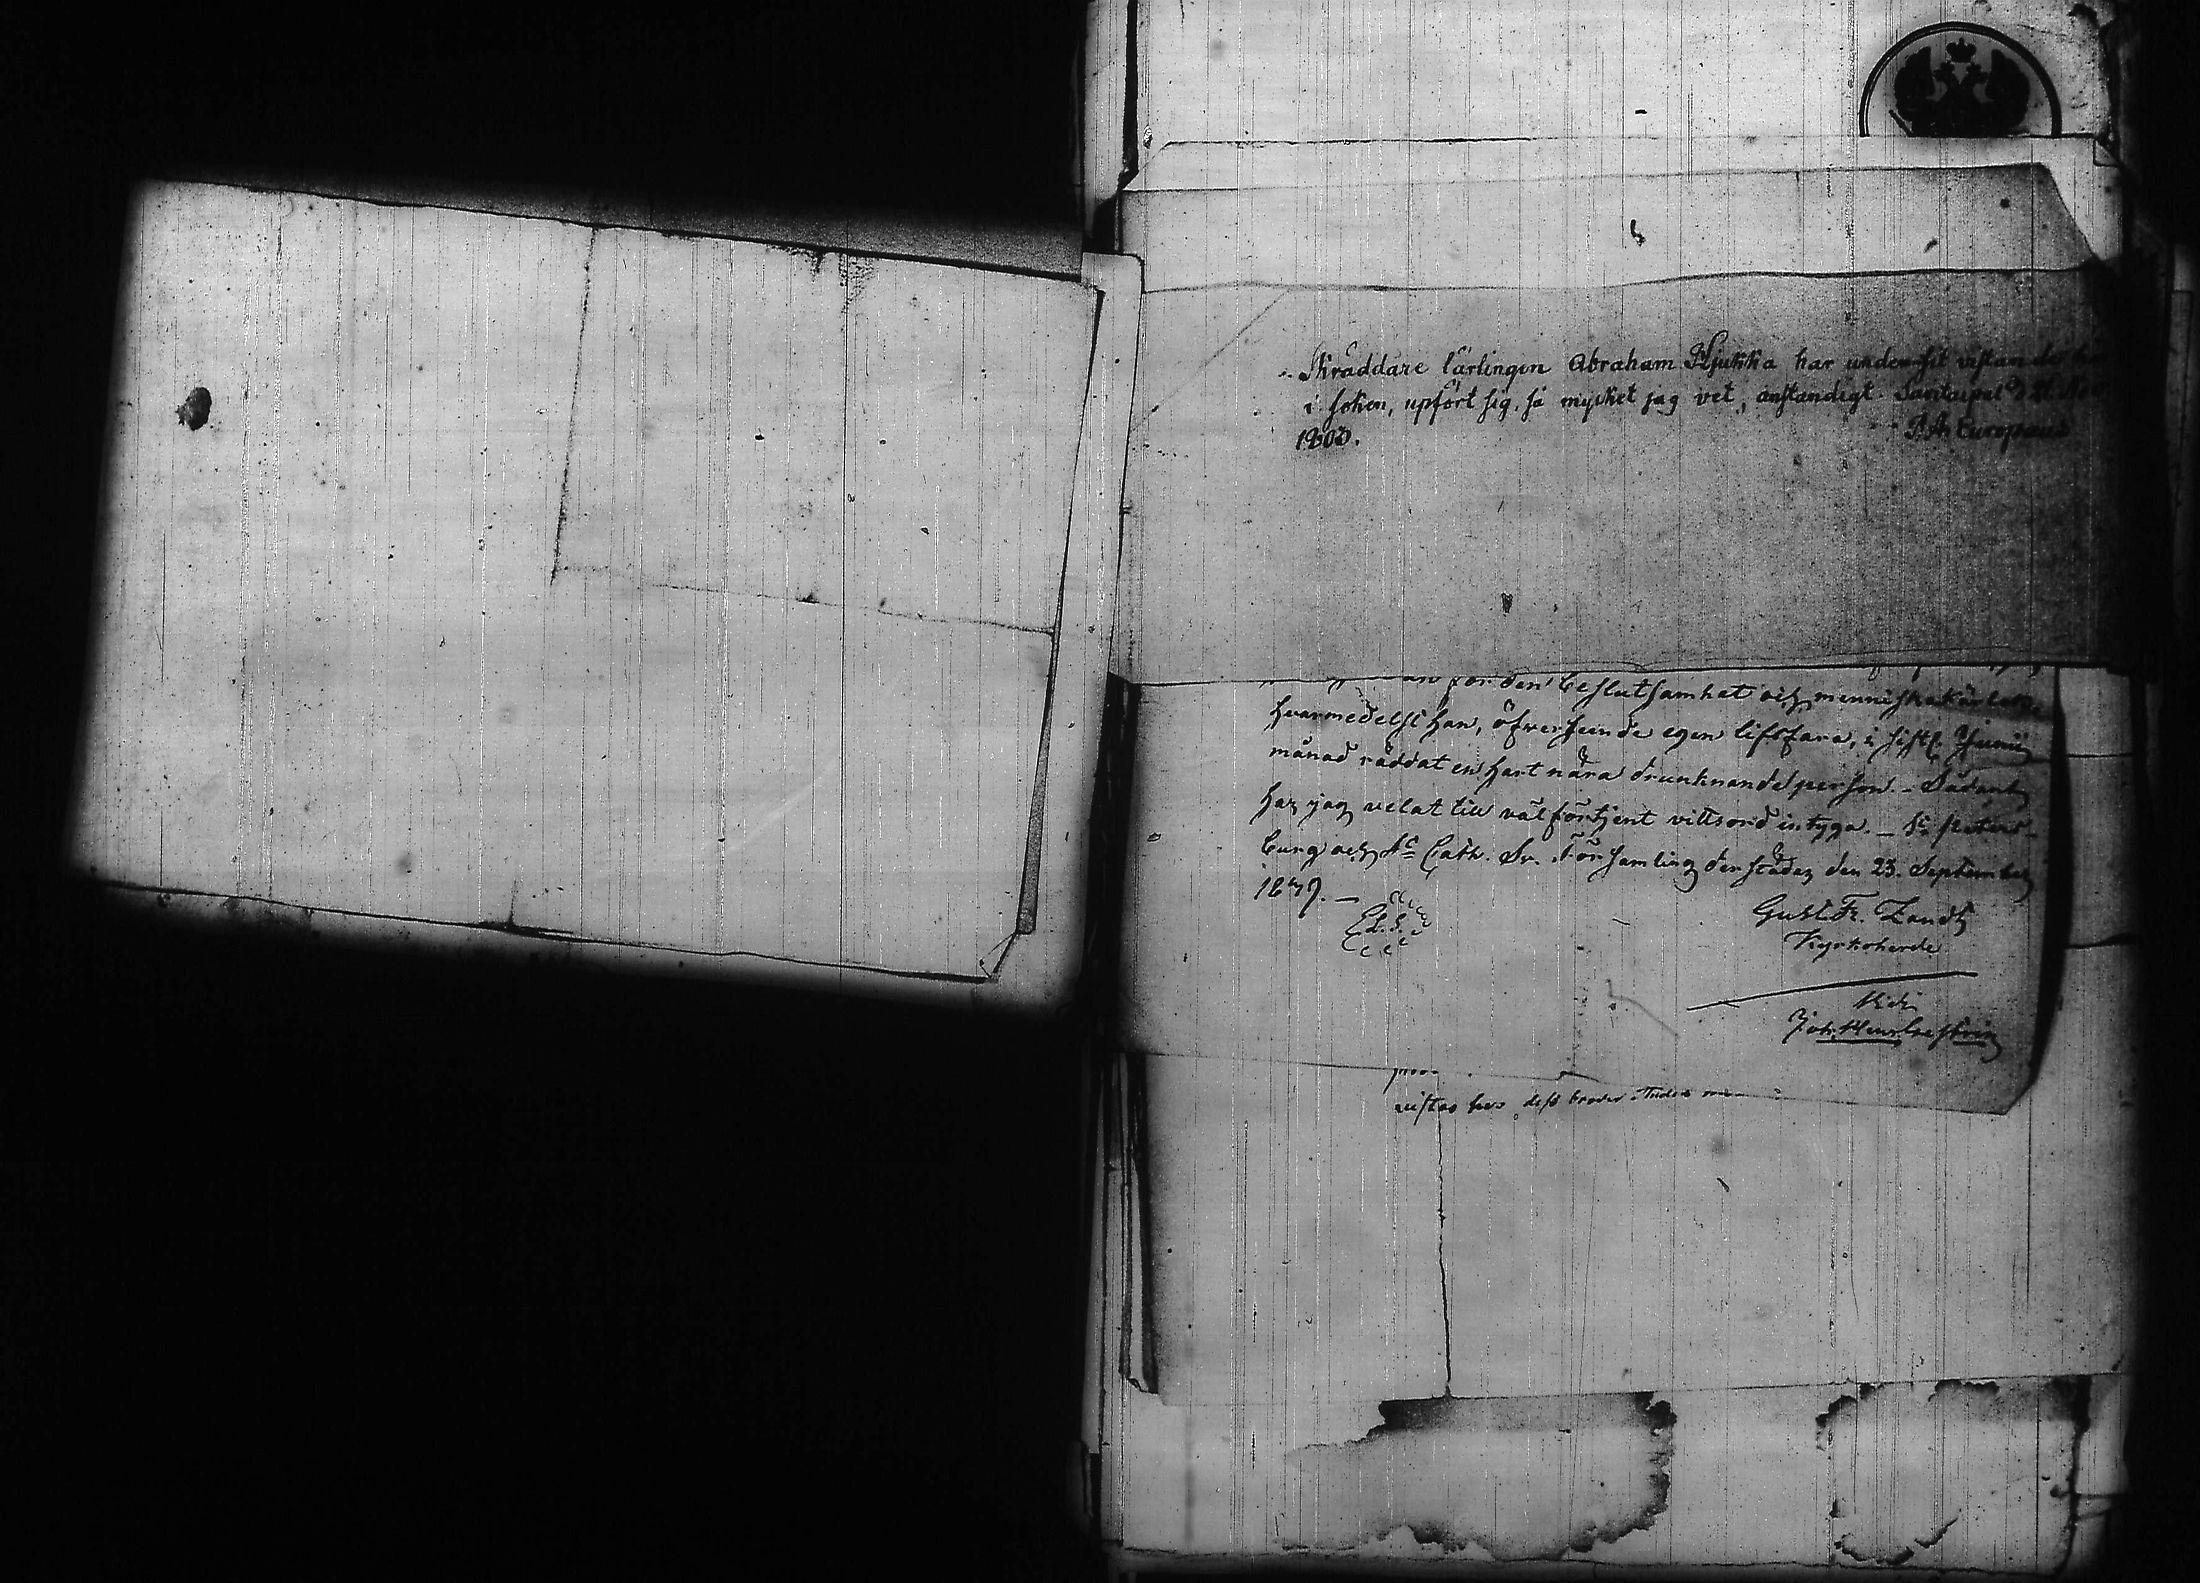 Skräddare lärlingen Abraham Hjukka har under sit vistande
i soken, upfört sig, så mycket jag vet, anständigt. Savitaipal d
1803. P. A. Europaeus
för den beslutsamhet och menniskokärlek,
hvarmedelst han, öfverseende egen lifsfara, i sistl. Junii
månad räddat en hart nära drunknande person. - Sådant
har jag velat till välförtjent vittsord intyga. - St. Peters-
burg och St. Cath. Sv. Församling derstädes den 23. September
1847. -
L. S.
Gust. Fr. Zandt
Kyrkoherde
Vidi
Joh. Henr.
vistas hos dess broder